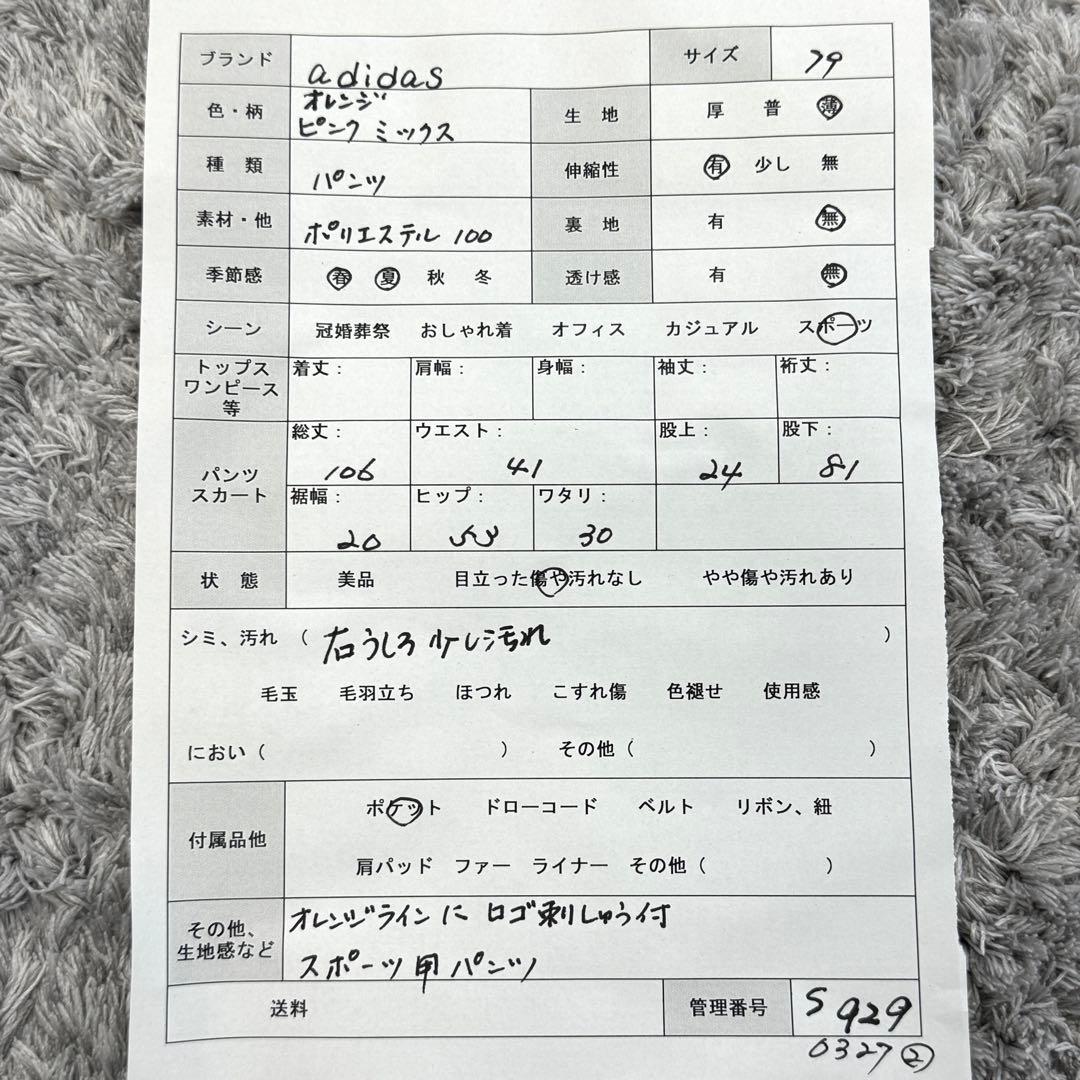 ブランド adidas サイズ 79
色・柄 オレンジ ピンク ミックス 生 地 厚 普 薄
種 類 パンツ 伸縮性 有 少し 無
素材・他 ポリエステル 100 裏 地 有 無
季節感 春 夏 秋 冬 透け感 有 無
シーン 冠婚葬祭 おしゃれ着 オフィス カジュアル スポーツ
トップス ワンピース 等 着丈： 肩幅： 身幅： 袖丈： 裄丈：
パンツ スカート 総丈： 106 ウエスト： 41 股上： 24 股下： 81
裾幅： 20 ヒップ： 53 ワタリ： 30
状 態 美品 目立った傷や汚れなし やや傷や汚れあり
シミ、汚れ （ 右うしろ 少し汚れ ）
毛玉 毛羽立ち ほつれ こすれ傷 色褪せ 使用感
におい（ ） その他（ ）
付属品他 ポケット ドローコード ベルト リボン、紐
肩パッド ファー ライナー その他（ ）
その他、 生地感など オレンジラインに ロゴ刺しゅう付
スポーツ用パンツ
送料 管理番号 S929
0327 ②